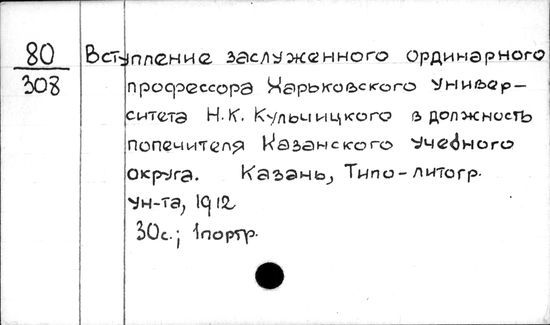 80
308
Вступление заслуженного ординарного
профессора Харьковского Универ-
ситета Н.К. Кульчицкого в должность
попечителя Казанского Учебного
округа. Казань, Типо-литогр.
Ун-та, 1912
30с.; 1портр.